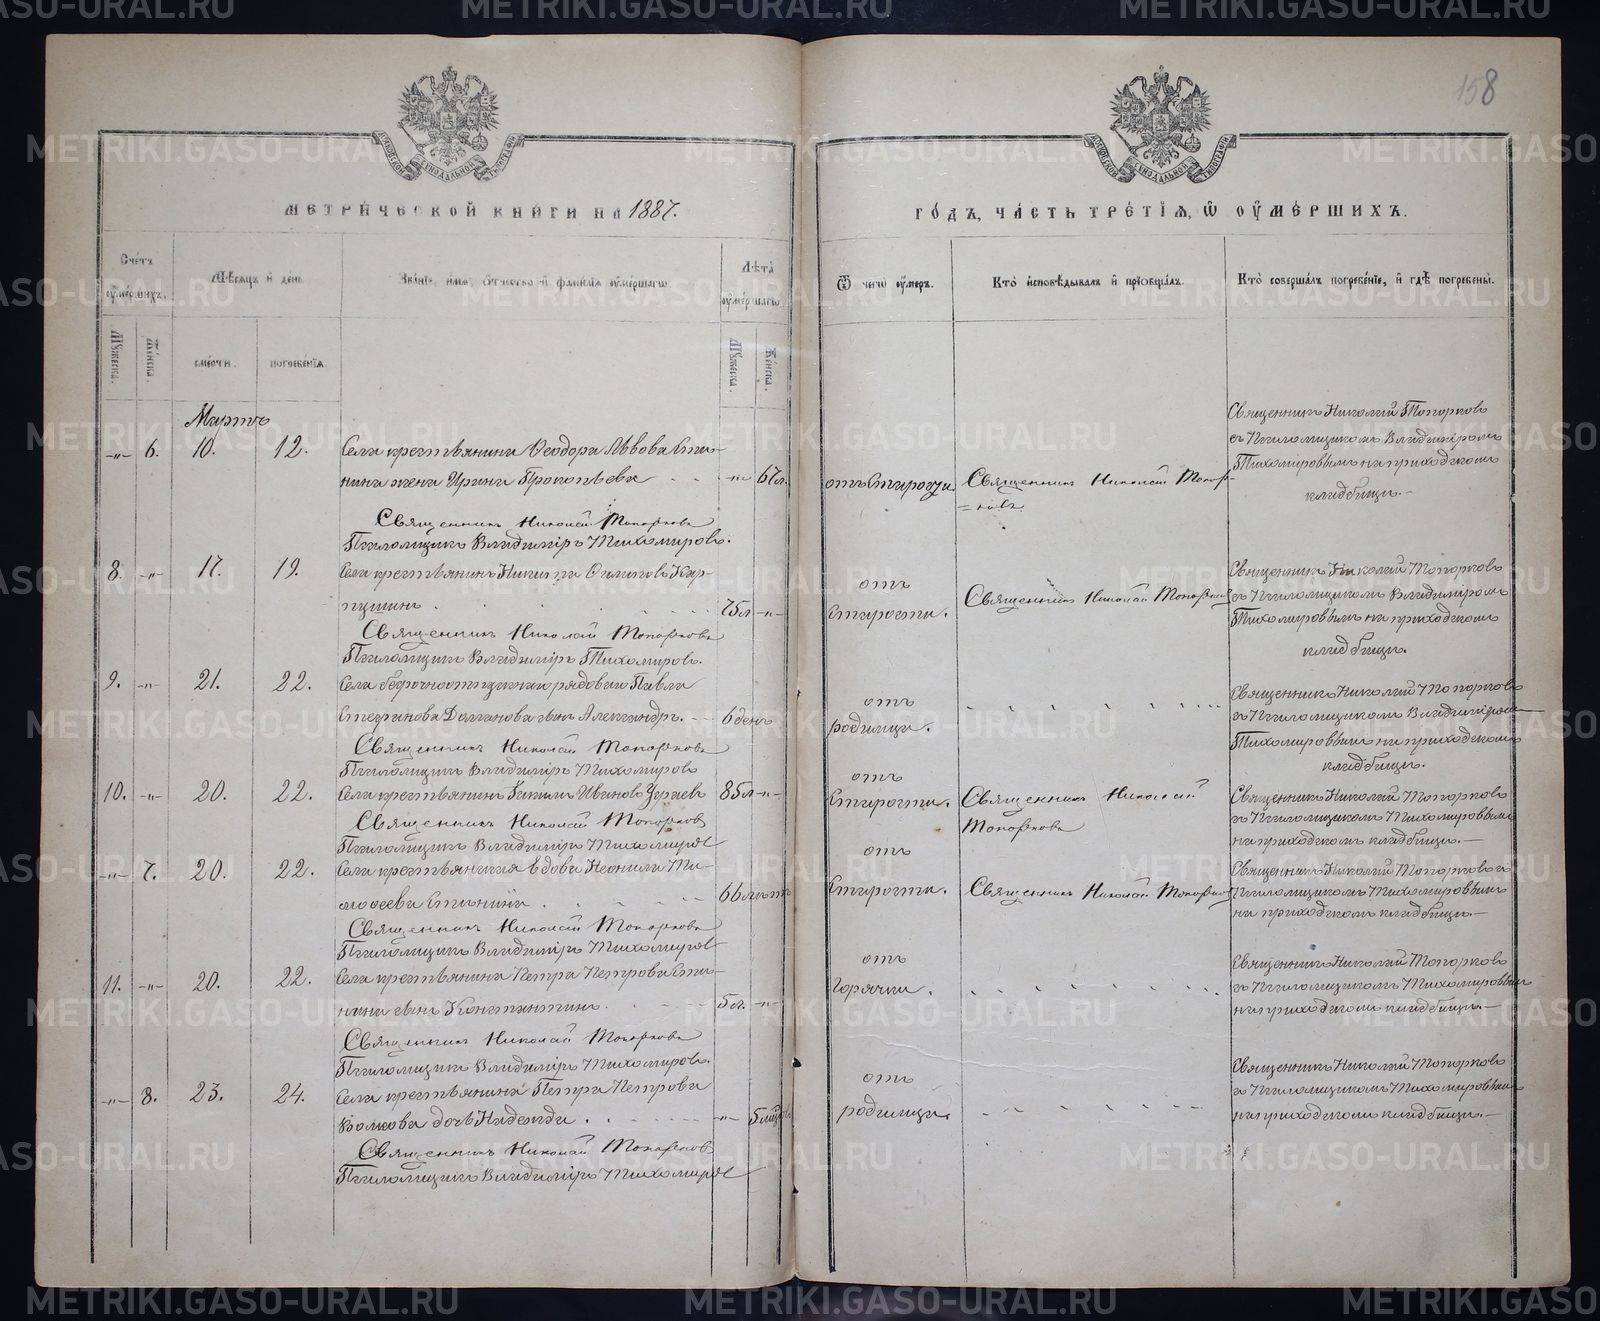 158
МЕТРИЧЕСКОЙ КНИГИ НА 1887.
ГОДЪ, ЧАСТЬ ТРЕТІЯ, Ѿ ОУМЕРШИХЪ.
Счетъ оумершихъ.
Мѣсяцъ и день
Званіе, имя, отчество и фамилія оумершагѡ.
Лѣта оумершагѡ
Ѿ чегѡ оумеръ.
Кто исповѣдывалъ и пріобщалъ.
Кто совершалъ погребеніе, и гдѣ погребены.
Мужеска.
Женска.
смерти.
погребенія.
Мужеска.
Женска.
Мартъ
-„- 6. 10. 12. Села крестьянина Ѳеодора Львова
жена Ирина Прокопьева -„- 67л.
отъ старости
Священникъ Николай Топор-
=ковъ
Священникъ Николай Топорковъ
съ Псаломщикомъ Владиміромъ
Тихомировымъ на приходскомъ
кладбищѣ.-
Священникъ Николай Топорковъ
Псаломщикъ Владиміръ Тихомировъ.
8. -„- 17. 19. Села крестьянинъ Никита Филиповъ Кар-
пушинъ 75л -„-
отъ
старости.
Священникъ Николай Топорковъ
Священникъ Николай Топорковъ
съ Псаломщикомъ Владиміромъ
Тихомировымъ на приходскомъ
кладбищѣ.
Священникъ Николай Топорковъ
Псаломщикъ Владиміръ Тихомировъ.
9. -„- 21. 22. Села безсрочноотпускнаго рядоваго Павла
Степанова Долганова сынъ Александръ. 6 день
отъ
родимца.
Священникъ Николай Топорковъ
съ Псаломщикомъ Владиміромъ
Тихомировымъ на приходскомъ
кладбищѣ.
Священникъ Николай Топорковъ
Псаломщикъ Владиміръ Тихомировъ
10. -„- 20. 22. Села крестьянинъ Иванов 85л -„-
отъ
старости.
Священникъ Николай
Топорковъ
Священникъ Николай Топорковъ
съ Псаломщикомъ Тихомировымъ
на приходскомъ кладбищѣ.-
Священникъ Николай Топорковъ
Псаломщикъ Владиміръ Тихомировъ
-„- 7. 20. 22. Села крестьянская вдова Неонила Ти-
мофеева 66 лѣтъ
отъ
старости.
Священникъ Николай Топорковъ
Священникъ Николай Топорковъ съ
Псаломщикомъ Тихомировымъ
на приходскомъ кладбищѣ.-
Священникъ Николай Топорковъ
Псаломщикъ Владиміръ Тихомировъ
11. -„- 20. 22. Села крестьянина Петра Петрова
сынъ Константинъ. 5л. -„-
отъ
горячки.
Священникъ Николай Топорковъ
съ Псаломщикомъ Тихомировымъ
на приходскомъ кладбищѣ.-
Священникъ Николай Топорковъ
Псаломщикъ Владиміръ Тихомировъ.
-„- 8. 23. 24. Села крестьянина Петра Петрова
Волкова дочь Надежда. -„- 5 мѣс
отъ
родимца.
Священникъ Николай Топорковъ
съ Псаломщикомъ Тихомировымъ
на приходскомъ кладбищѣ.-
Священникъ Николай Топорковъ
Псаломщикъ Владиміръ Тихомировъ
METRIKI.GASO-URAL.RU